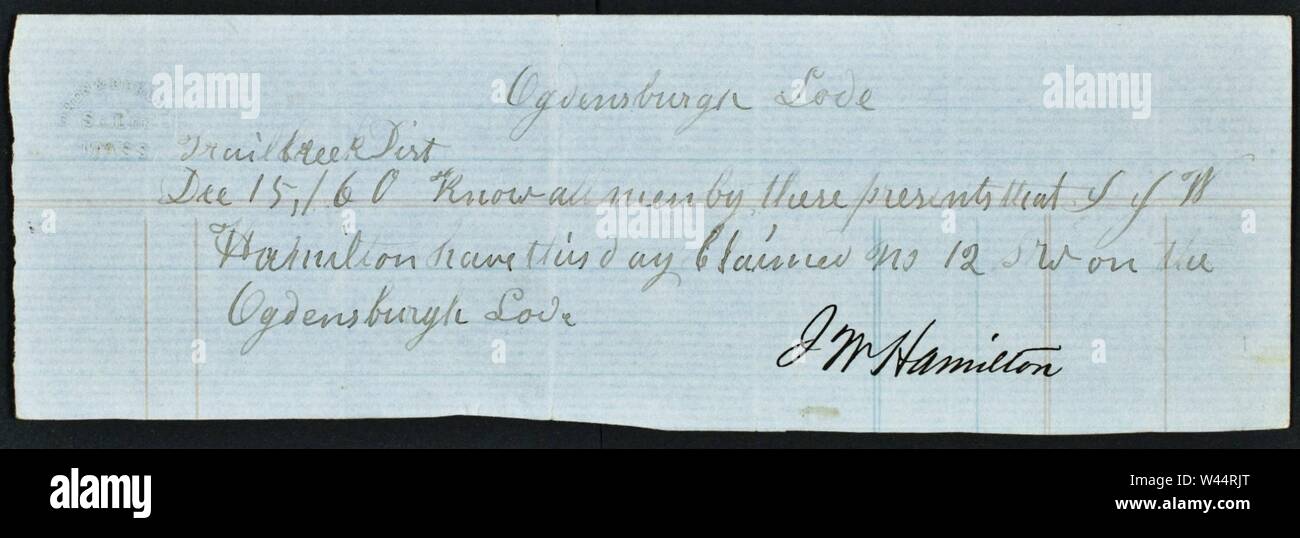 Ogdensburgh Lode
Trail Creek Dist
Dec 15, /60 Know all men by these presents that I J W
Hamilton have this day Claimed No 12 on the
Ogdensburgh Lode
J W Hamilton
alamy
alamy
alamy
alamy
alamy
Image ID: W44RJT
www.alamy.com